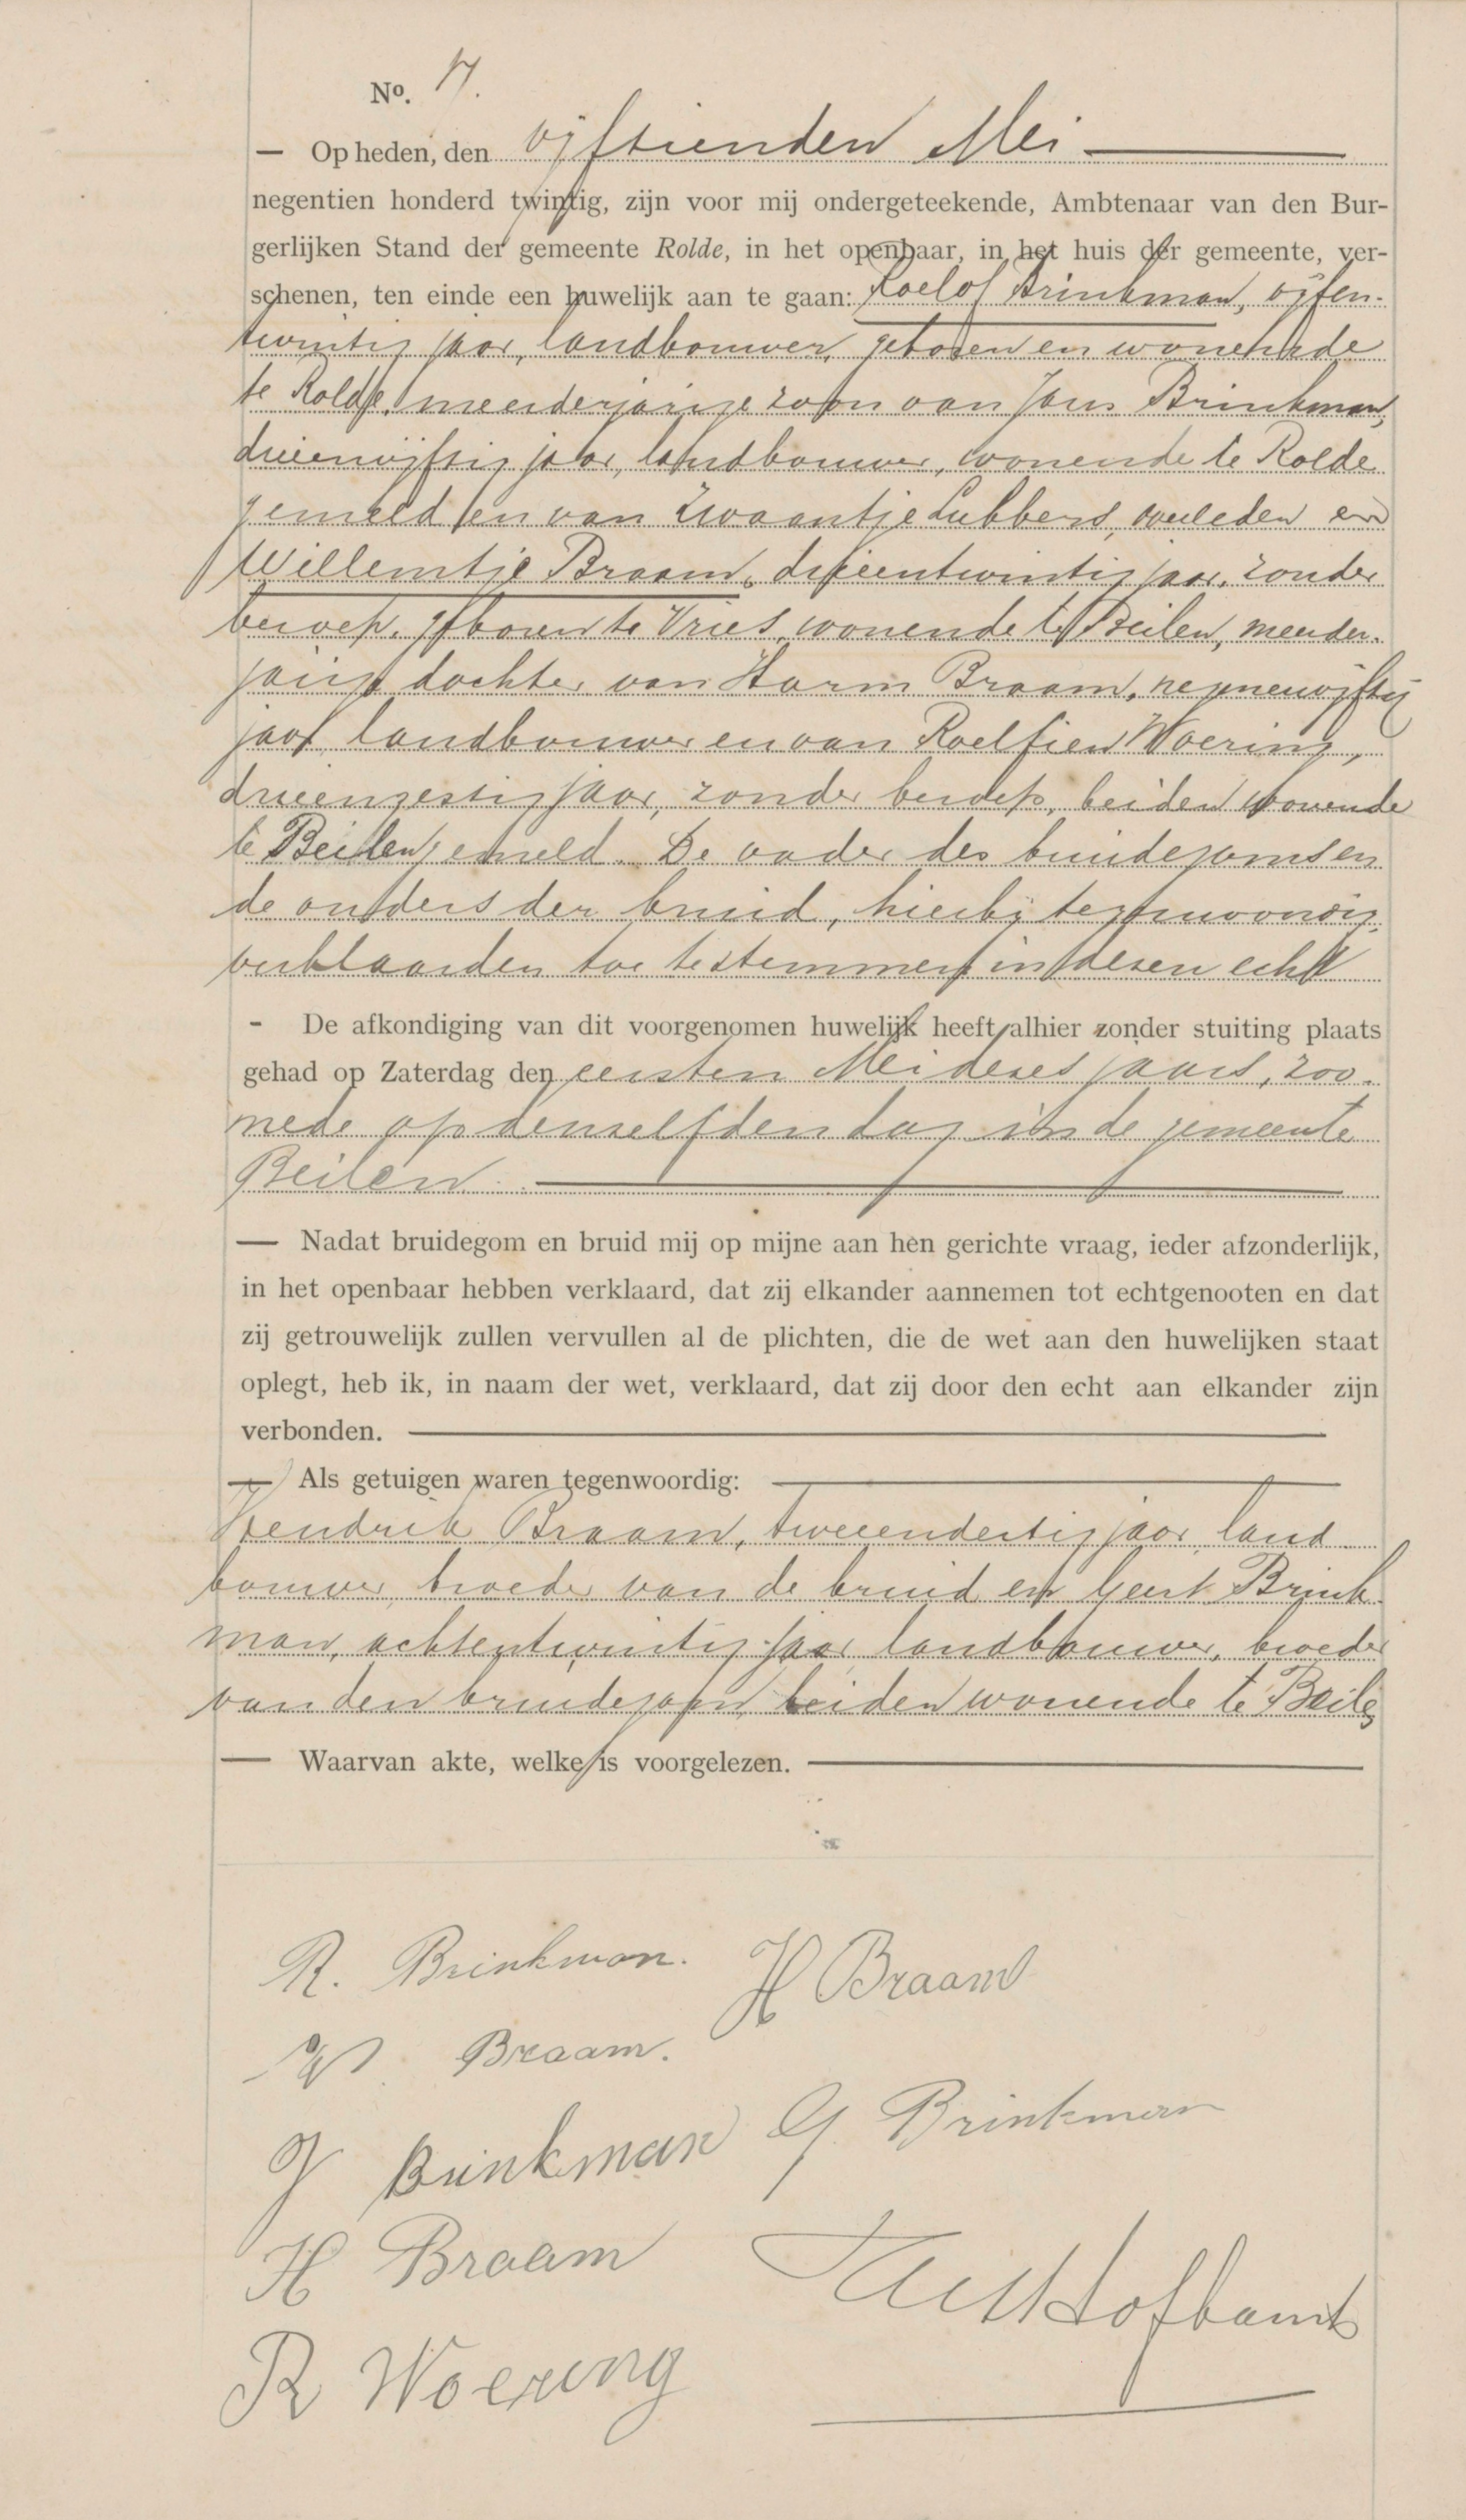 No. 17.
— Op heden, den vijftienden Mei
negentien honderd twintig, zijn voor mij ondergeteekende, Ambtenaar van den Bur-
gerlijken Stand der gemeente Rolde, in het openbaar, in het huis der gemeente, ver-
schenen, ten einde een huwelijk aan te gaan: Roelof Brinkman, vijfen-
twintig jaar, landbouwer, geboren en wonende
te Rolde, meerderjarige zoon van Jans Brinkman,
drieenvijftig jaar, landbouwer, wonende te Rolde
gemeld en van Zwaantje Lubbers, overleden en
Willemtje Braam, drieentwintig jaar, zonder
beroep, geboren te Vries, wonende te Beilen, meerder-
jarige dochter van Harm Braam, negenenvijftig
jaar landbouwer en van Roelfien Woering,
drieenzestig jaar, zonder beroep, beiden wonende
te Beilen gemeld. De vader des bruidegoms en
de ouders der bruid, hierbij tegenwoordig,
verklaarden toe te stemmen in dezen echt
- De afkondiging van dit voorgenomen huwelijk heeft alhier zonder stuiting plaats
gehad op Zaterdag den eersten Mei dezes jaars, zoo-
mede op denzelfden dag in de gemeente
Beilen.
— Nadat bruidegom en bruid mij op mijne aan hen gerichte vraag, ieder afzonderlijk,
in het openbaar hebben verklaard, dat zij elkander aannemen tot echtgenooten en dat
zij getrouwelijk zullen vervullen al de plichten, die de wet aan den huwelijken staat
oplegt, heb ik, in naam der wet, verklaard, dat zij door den echt aan elkander zijn
verbonden.
— Als getuigen waren tegenwoordig:
Hendrik Braam, tweeendertig jaar, land
bouwer, broeder van de bruid en Geert Brink
man, achtentwintig jaar landbouwer, broeder
van den bruidegom, beiden wonende te Beilen
— Waarvan akte, welke is voorgelezen.
R. Brinkman. H Braam
W. Braam.
J Brinkman G Brinkman
H Braam
R Woering